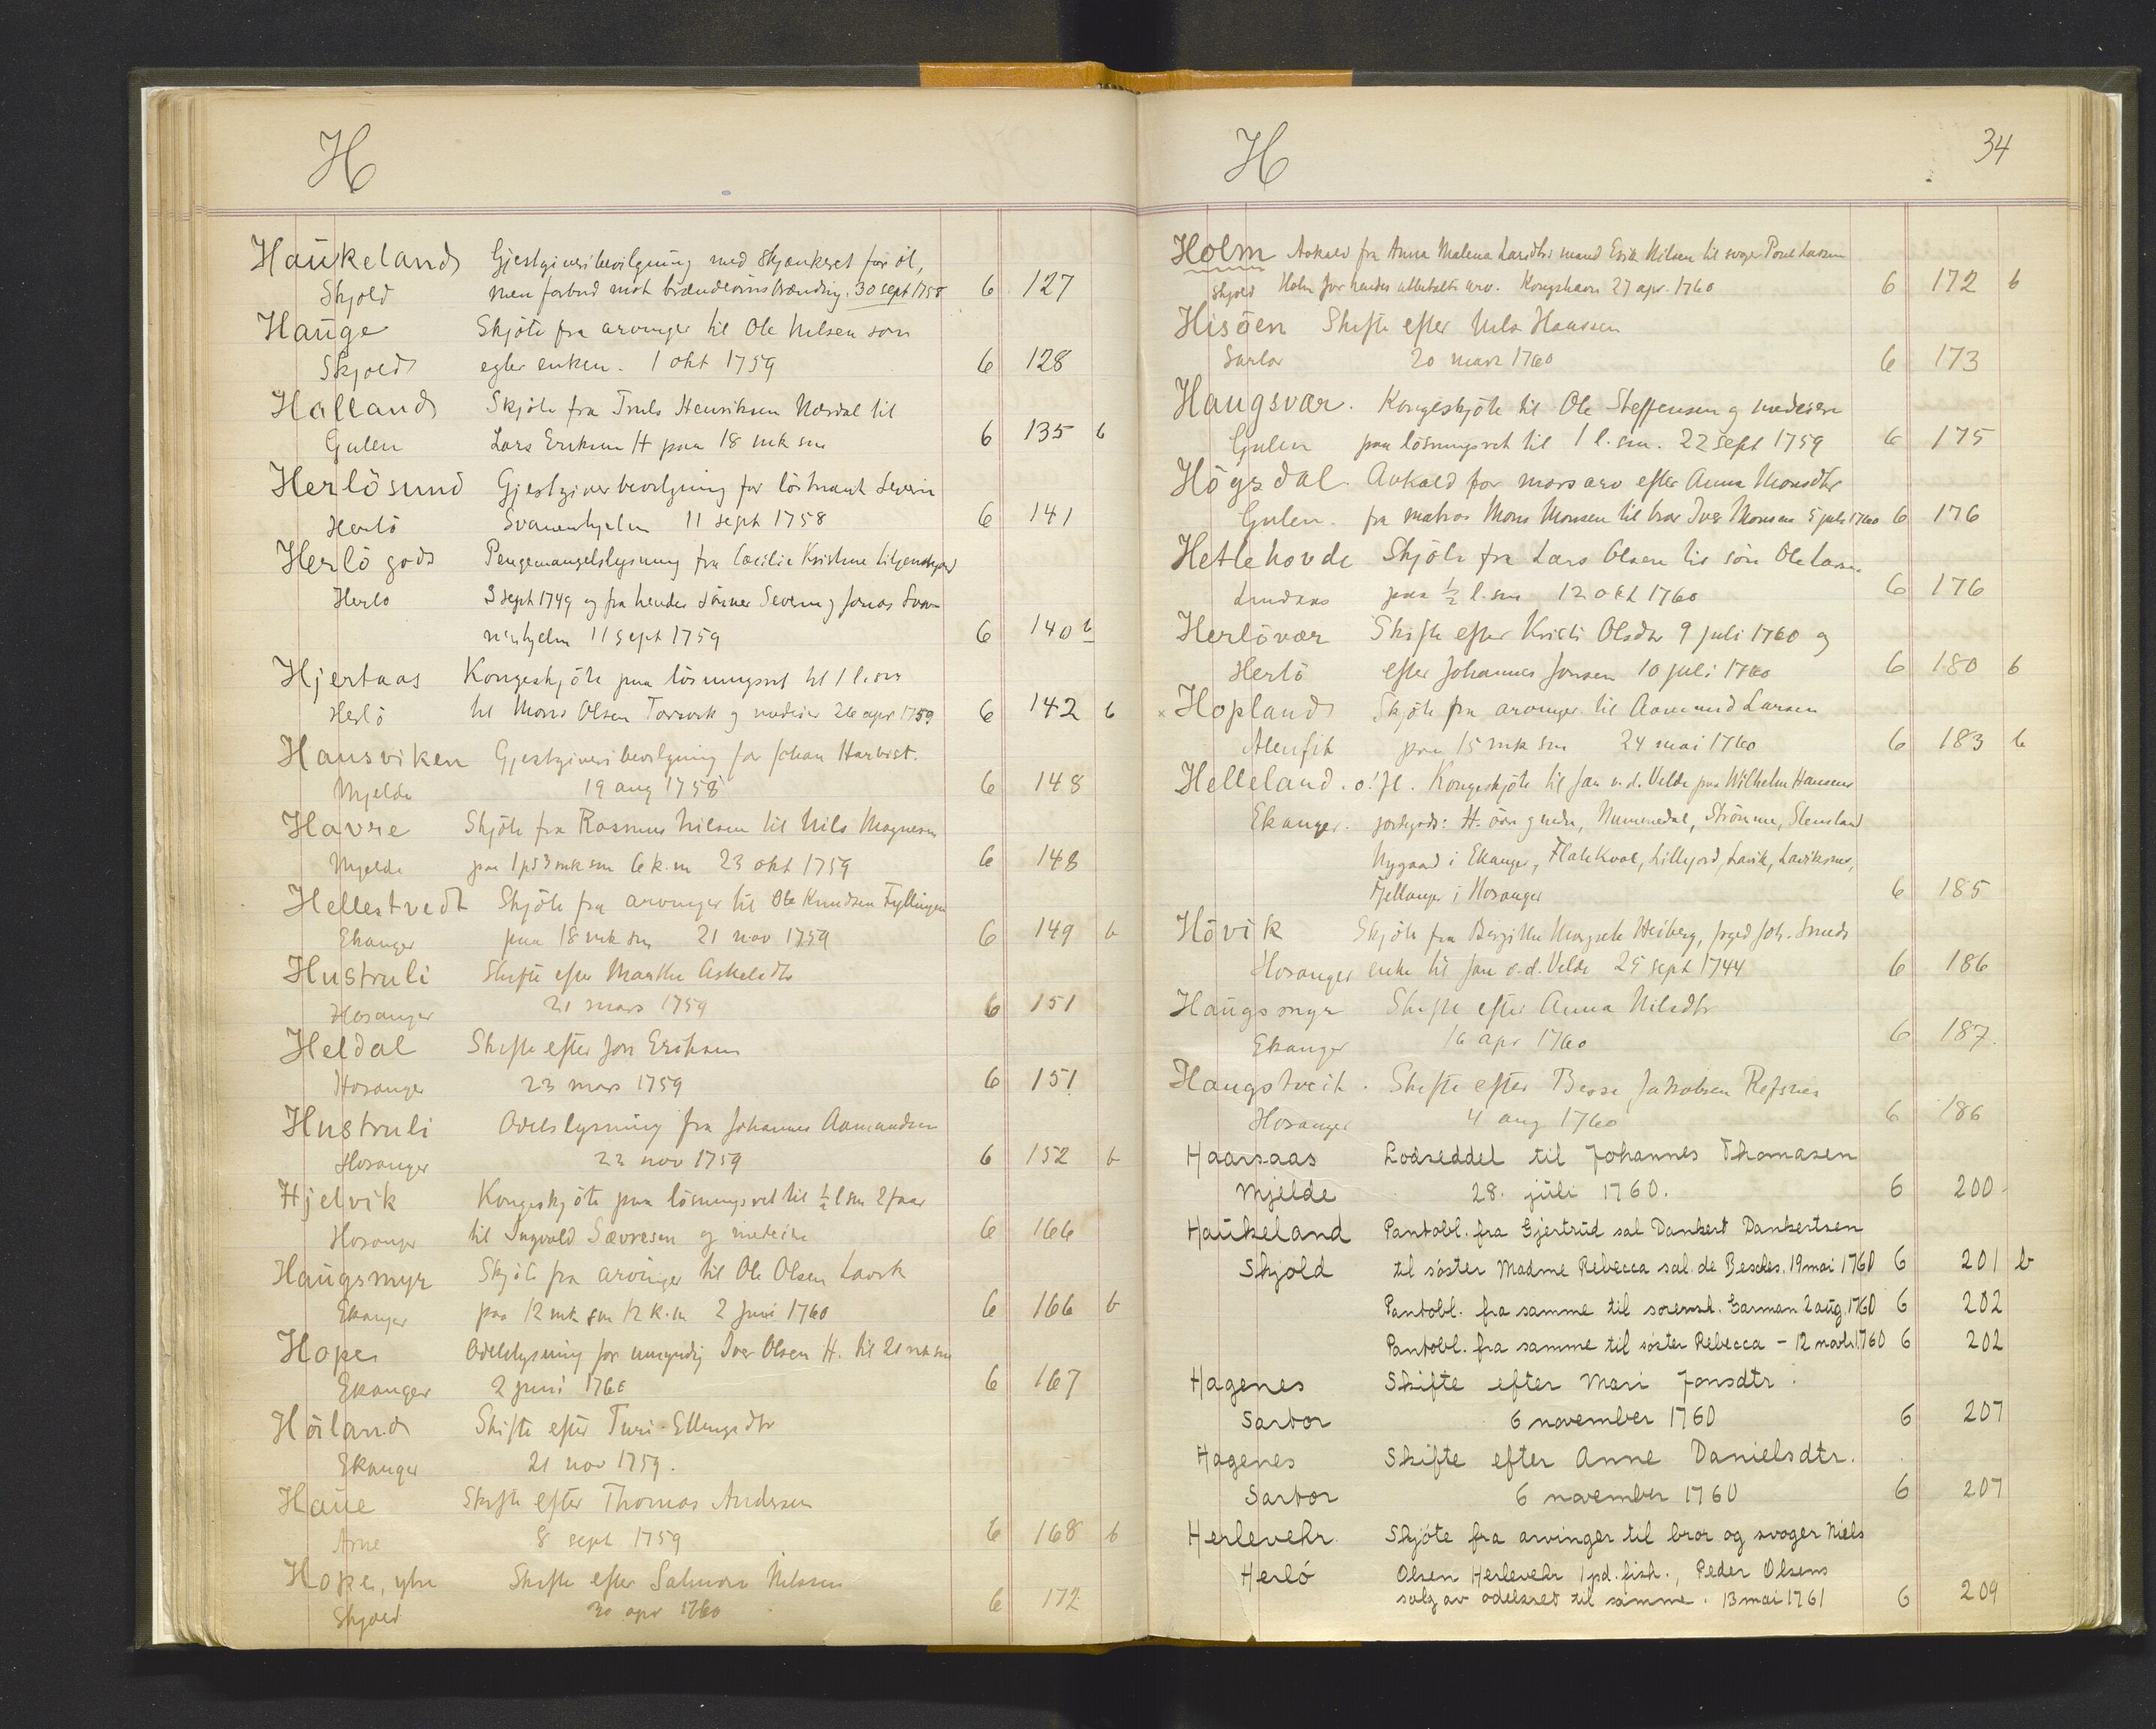 H
Haukeland Gjestgiveribevilgning med skjænkeret for öl,
Skjold men forbud mot brændevinsbrænding. 30 sept 1758 6 127
Hauge Skjöte fra arvinger til Ole Nilsen som
Skjold egter enken. 1 okt 1759 6 128
Halland Skjöte fra Truls Henriksen Nordal til
Gulen Lars Eriksen H paa 18 mk sm 6 135 b
Herlösund Gjestgiverbevilgning for löitnant Severin
Herlö Svanenhjelm 11 sept 1758 6 141
Herlö gods Pengemangelslysning fra Cecilie Kristine
Herlö 3 sept 1749 og fra hendes sönner Severin og Jonas Svan-
nenhjelm 11 sept 1759 6 140 b
Hjertaas Kongeskjöte paa lösningsret til 1 l.
Herlö til Mons Olsen og medeier 26 apr 1759 6 142 b
Hausviken Gjestgiveribevilgning for Johan Harbist.
Mjelde 19 aug 1758 6 148
Havre Skjöte fra Rasmus Nilsen til Nils Magnesen
Mjelde paa 1 p 3 mk sm 6 k.m 23 okt 1759 6 148
Hellestvedt Skjöte fra arvinger til Ole Knudsen Fyllingen
Ekanger paa 18 mk sm 21 nov 1759 6 149 b
Hustruli Skifte efter Marthe Askeledtr
Hosanger 21 mars 1759 6 151
Heldal Skifte efter Jon Eriksen
Hosanger 23 mars 1759 6 151
Hustruli Odelslysning fra Johannes Aamundsen
Hosanger 22 nov 1759 6 152 b
Hjelvik Kongeskjöte paa lösningsret til ½ l sm 2 faar
Hosanger til Ingvald Sævresen og medeier 6 166
Haugsmyr Skjöte fra arvinger til Ole Olsen Lavik
Ekanger paa 12 mk sm 12 k.m 2 juni 1760 6 166 b
Hope Odelslysning for umyndig Iver Olsen H. til 21 mk sm
Ekanger 2 juni 1760 6 167
Höiland Skifte efter Turi Ellingsdtr
Ekanger 21 nov 1759.
Haue Skifte efter Thomas Andersen
Arne 8 sept 1759 6 168 b
Hope, ytre Skifte efter Salmon Nilssen
Skjold 30 apr 1760 6 172
H 34
Holm Avkald fra Anna Malena Larsdtrs mand Erik Nilsen til svoger Poul Larsen
Skjold Holm for hendes utbetalte arv. Kongshavn 27 apr. 1760 6 172 b
Hisöen Skifte efter Nils Hanssen
Sartor 20 mars 1760 6 173
Haugsvær. Kongeskjöte til Ole Steffensen og medeiere
Gulen paa lösningsret til 1 l. sm. 22 sept 1759 6 175
Högsdal. Avkald for morsarv efter Anna Monsdtr
Gulen. fra matros Mons Monsen til bror Iver Monsen 5 juli 1760 6 176
Hetlehovde Skjöte fra Lars Olsen til sön Ole Larsen
Lindaas paa ½ l. sm 12 okt 1760 6 176
Herlövær Skifte efter Kristi Olsdtr 9 juli 1760 og
Herlö efter Johannes Jonsen 10 juli 1760 6 180 b
× Hopland Skjöte fra arvinger til Aamund Larsen
Alenfit paa 15 mk sm 24 mai 1760 6 183 b
Helleland. Kongeskjöte til Jan v.d. Velde paa Wilhelm Hansens
Ekanger. jordegods: H. övre g nedre, Nummedal, Strömme, Stensland
Nygaard i Ekanger, Flatekval, Lillejord, Lavik, Laviknes,
Fjellanger i Hosanger 6 185
Hövik Skjöte fra Birgitte Margrete Heiberg, foged Joh. Smeds
Hosanger enke til Jan v.d. Velde 25 sept 1744 6 186
Haugsmyr Skifte efter Anna Nilsdtr
Ekanger 16 apr 1760 6 187.
Haugstveit. Skifte efter Besse Jakobsen Refsnes
Hosanger 4 aug 1760 6 186
Haarsaas Lodseddel til Johannes Thomasen
Mjelde 28. juli 1760. 6 200
Haukeland Pantobl. fra Gjertrud sal Dankert Dankertsen
Skjold til söster Madme Rebecca sal. de Besches. 19 mai 1760 6 201 b
Pantobl. fra samme til sorensk. Garman 2 aug. 1760 6 202
Pantobl. fra samme til söster Rebecca - 12 novbr. 1760 6 202
Hagenes Skifte efter Mari Jonsdtr.
Sartor 6 november 1760 6 207
Hagenes Skifte efter Anne Danielsdtr.
Sartor 6 november 1760 6 207
Herlevehr Skjöte fra arvinger til bror og svoger Niels
Herlö Olsen Herlevehr 1 pd. fisk., Peder Olsens
salg av odelsret til samme. 13 mai 1761 6 209